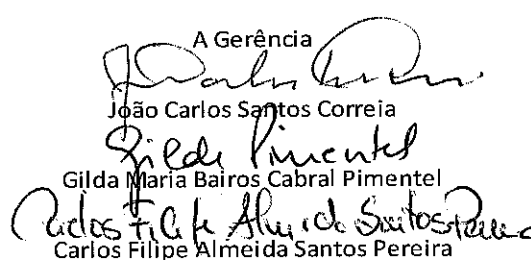 A Gerência
João Carlos Santos Correia
Gilda Pimentel
Gilda Maria Bairos Cabral Pimentel
Carlos Filipe Almeida Santos Pereira
Carlos Filipe Almeida Santos Pereira